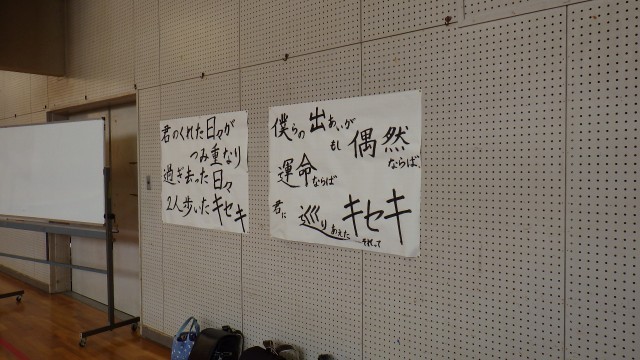 君のくれた日々が
つみ重なり
過ぎ去った日々
2人歩いたキセキ
僕らの出あいが
もし偶然
ならば
運命ならば
君に巡りあえた
それってキセキ